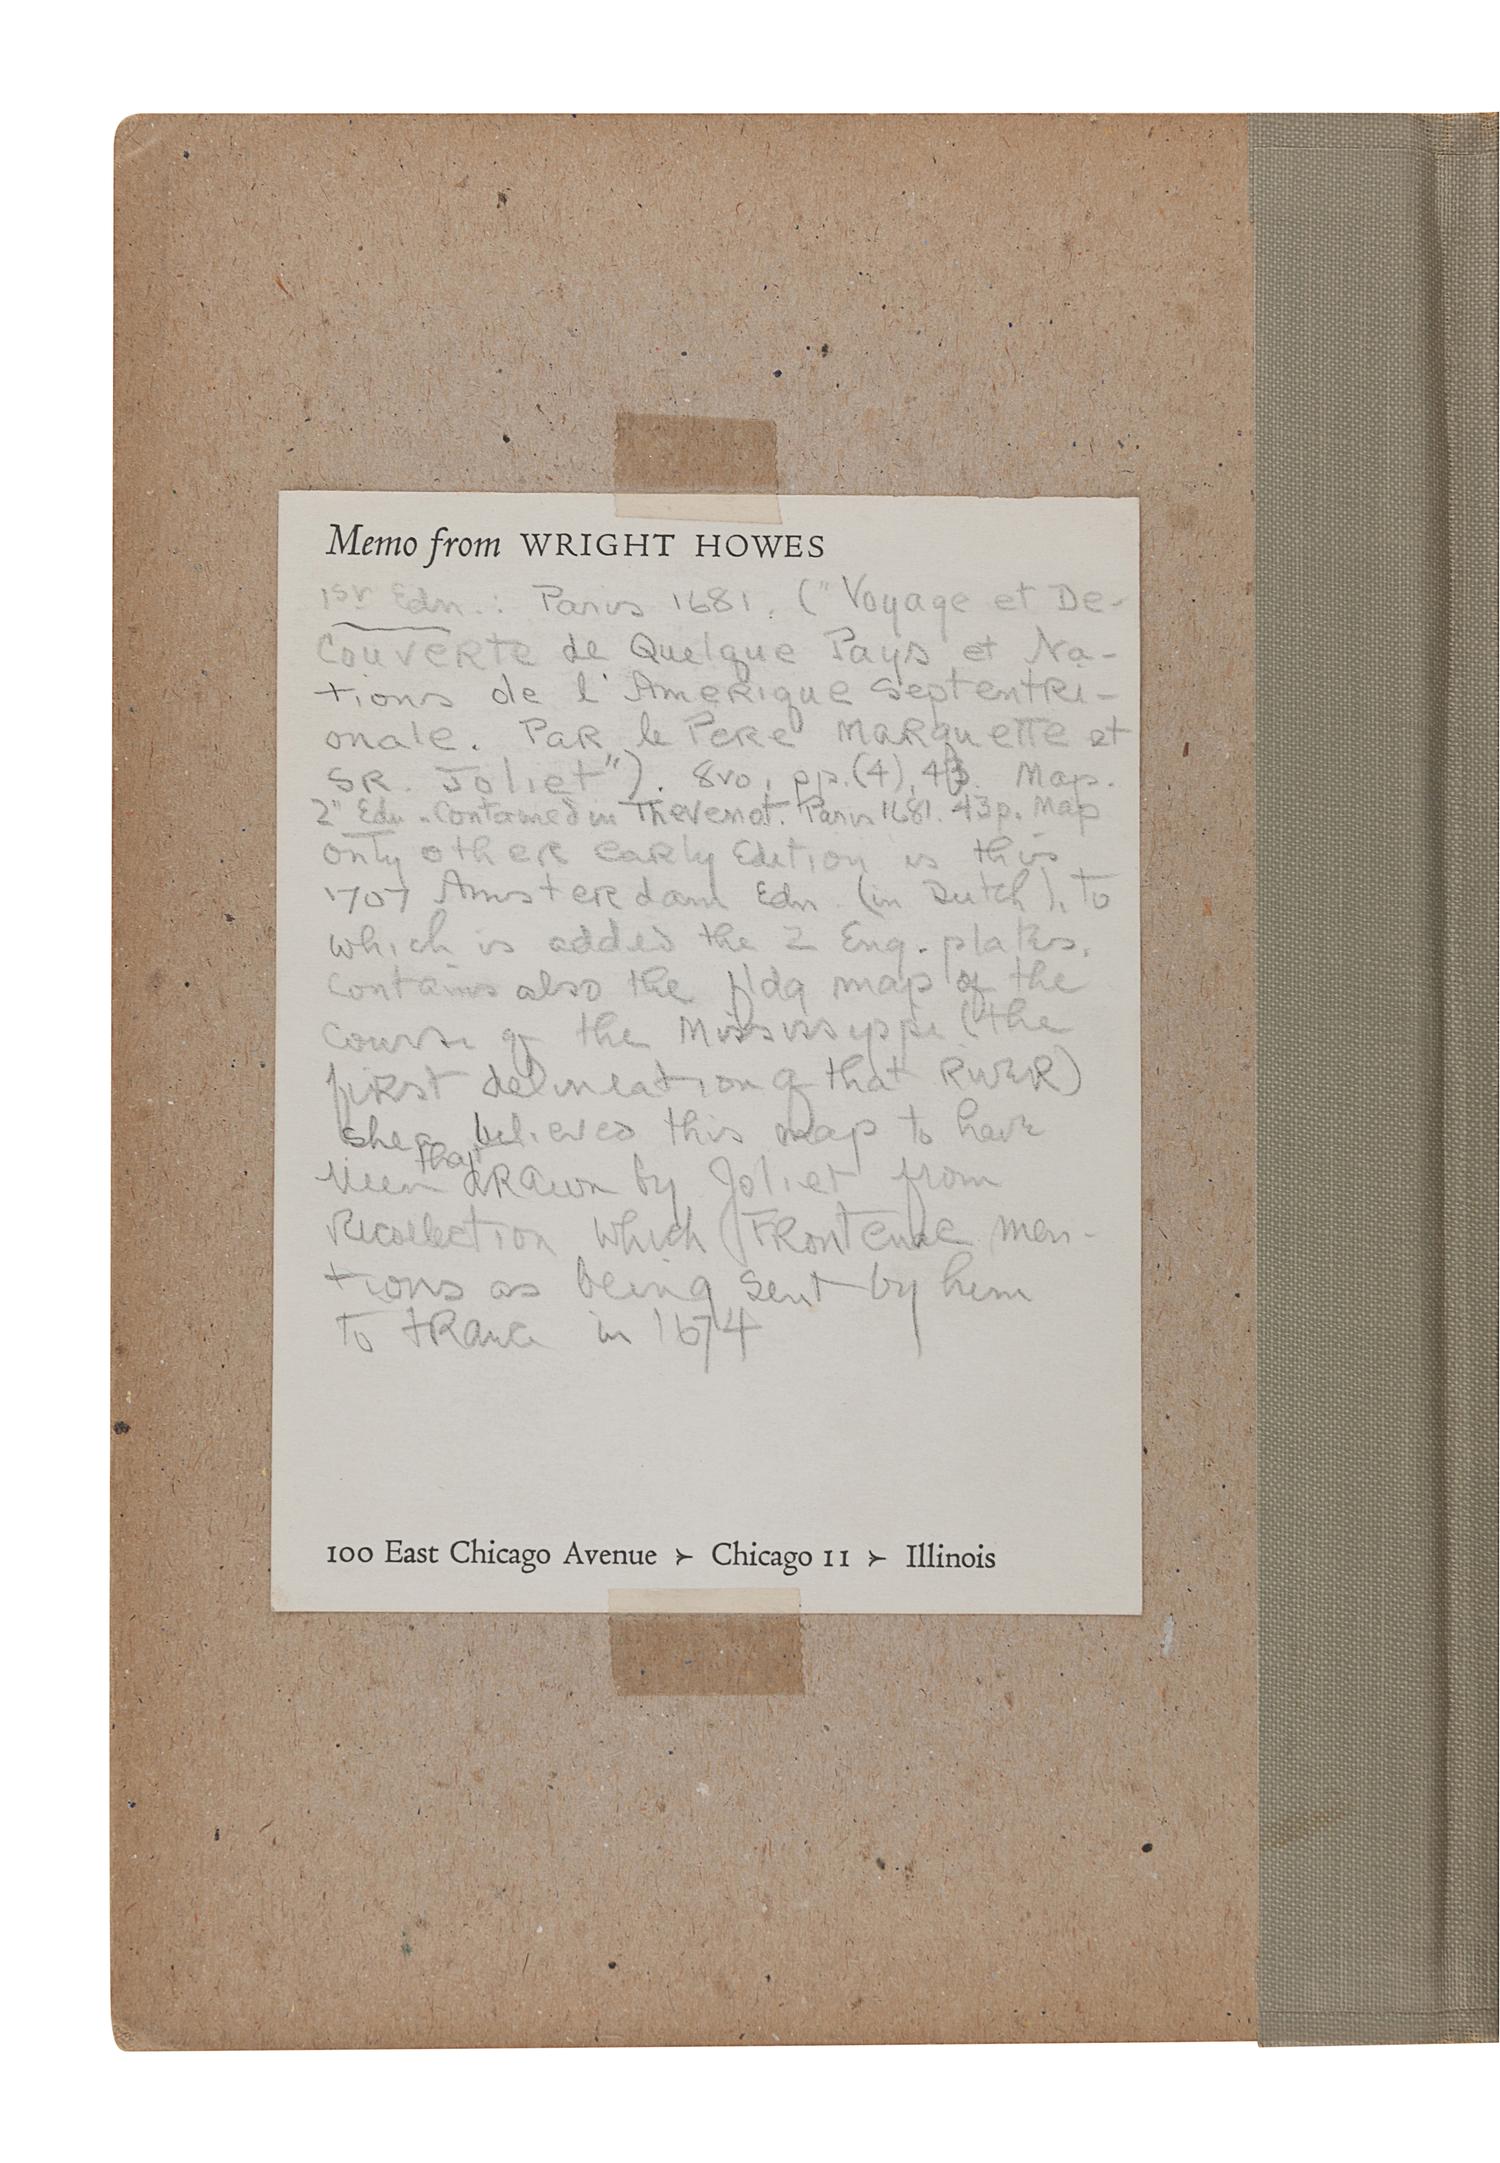 Memo from WRIGHT HOWES
1st Edn.: Paris 1681. ("Voyage et De-
couverte de Quelque Pays et Na-
tions de l'Amerique Septentri-
onale. Par le Pere Marquette et
SR. Joliet"). 8vo, pp.(4), 43. Map.
2" Edn. Contained in Thevenot. Paris 1681. 43p. Map
only other early Edition is this
1707 Amsterdam Edn. (in Dutch), to
which is added the 2 Eng. plates.
Contains also the fldg map of the
course of the Mississippi (the
first delineation of that River)
Shea believed this map to have
been that drawn by Joliet from
Recollection which Frontenac men-
tions as being sent by him
to France in 1674
100 East Chicago Avenue > Chicago 11 > Illinois